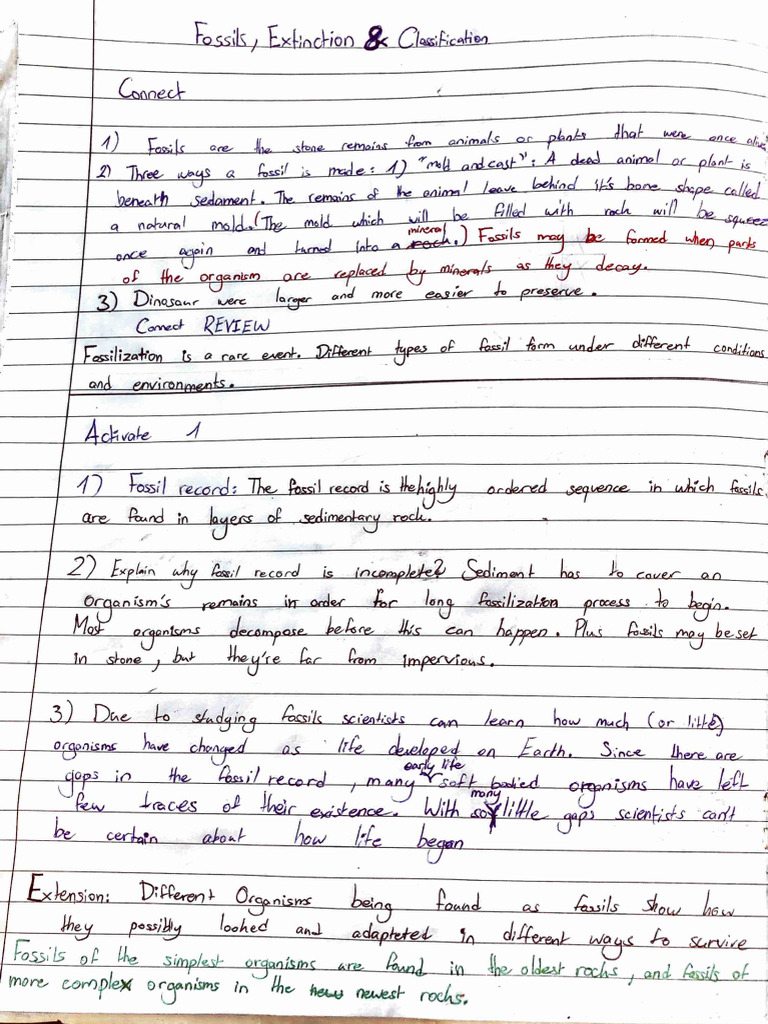 Fossils, Extinction & Classification
Connect
1) Fossils are the stone remains from animals or plants that were once alive
2) Three ways a fossil is made: 1) "mold and cast": A dead animal or plant is
beneath sedament. The remains of the animal leave behind it's bone shape called
a natural mold. (The mold which will be filled with rock will be squeez
once again and turned into a rock. mineral) Fossils may be formed when parts
of the organism are replaced by minerals as they decay.
3) Dinasaur were larger and more easier to preserve.
Connect REVIEW
Fossilization is a rare event. Different types of fossil form under different conditions
and environments.
Activate 1
1) Fossil record: The fossil record is the highly ordered sequence in which fossils
are found in layers of sedimentary rock.
2) Explain why fossil record is incomplete? Sediment has to cover an
organism's remains in order for long fossilization process to begin.
Most organisms decompose before this can happen. Plus fossils may be set
in stone, but they're far from impervious.
3) Due to studying fossils scientists can learn how much (or little)
organisms have changed as life developed on Earth. Since there are
gaps in the fossil record, many early life soft bodied organisms have left
few traces of their existence. With so many little gaps scientists can't
be certain about how life began
Extension: Different Organisms being found as fossils show how
they possibly looked and adapteted in different ways to survive
Fossils of the simplest organisms are found in the oldest rocks, and fossils of
more complex organisms in the news newest rocks.